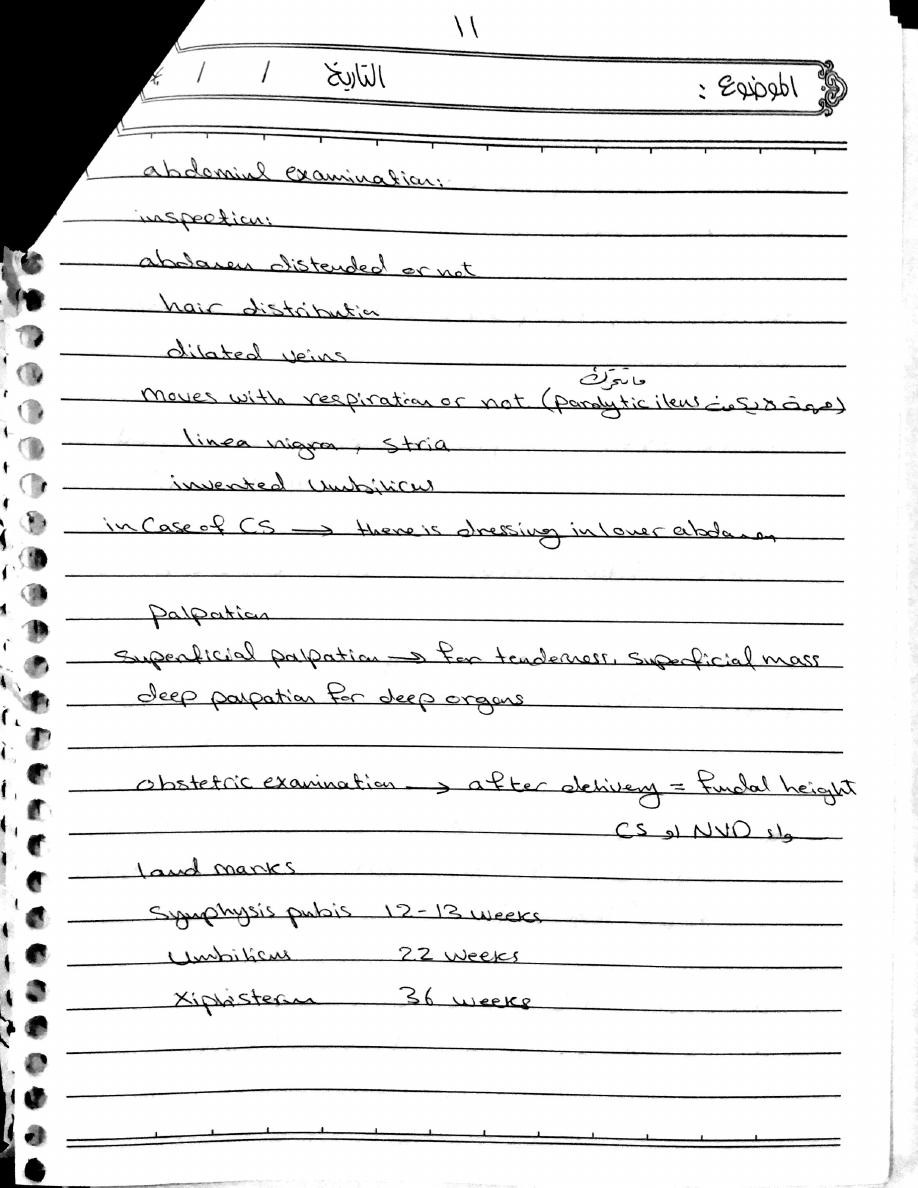 ١١
الموضوع : التاريخ / /
abdominl examination:
inspection:
abdomen distended or not
hair distribution
dilated veins
ماتتحرك
moves with respiration or not (paralytic ileus)
linea nigra, stria
invented umbilicus
in Case of CS → there is dressing in lower abdomen
palpation
superficial palpation → for tenderness, superficial mass
deep palpation for deep organs
obstetric examination → after delivery = fundal height
CS او NVD
land marks
Symphysis pubis 12-13 weeks
Umbilicus 22 weeks
Xiphisternum 36 weeks